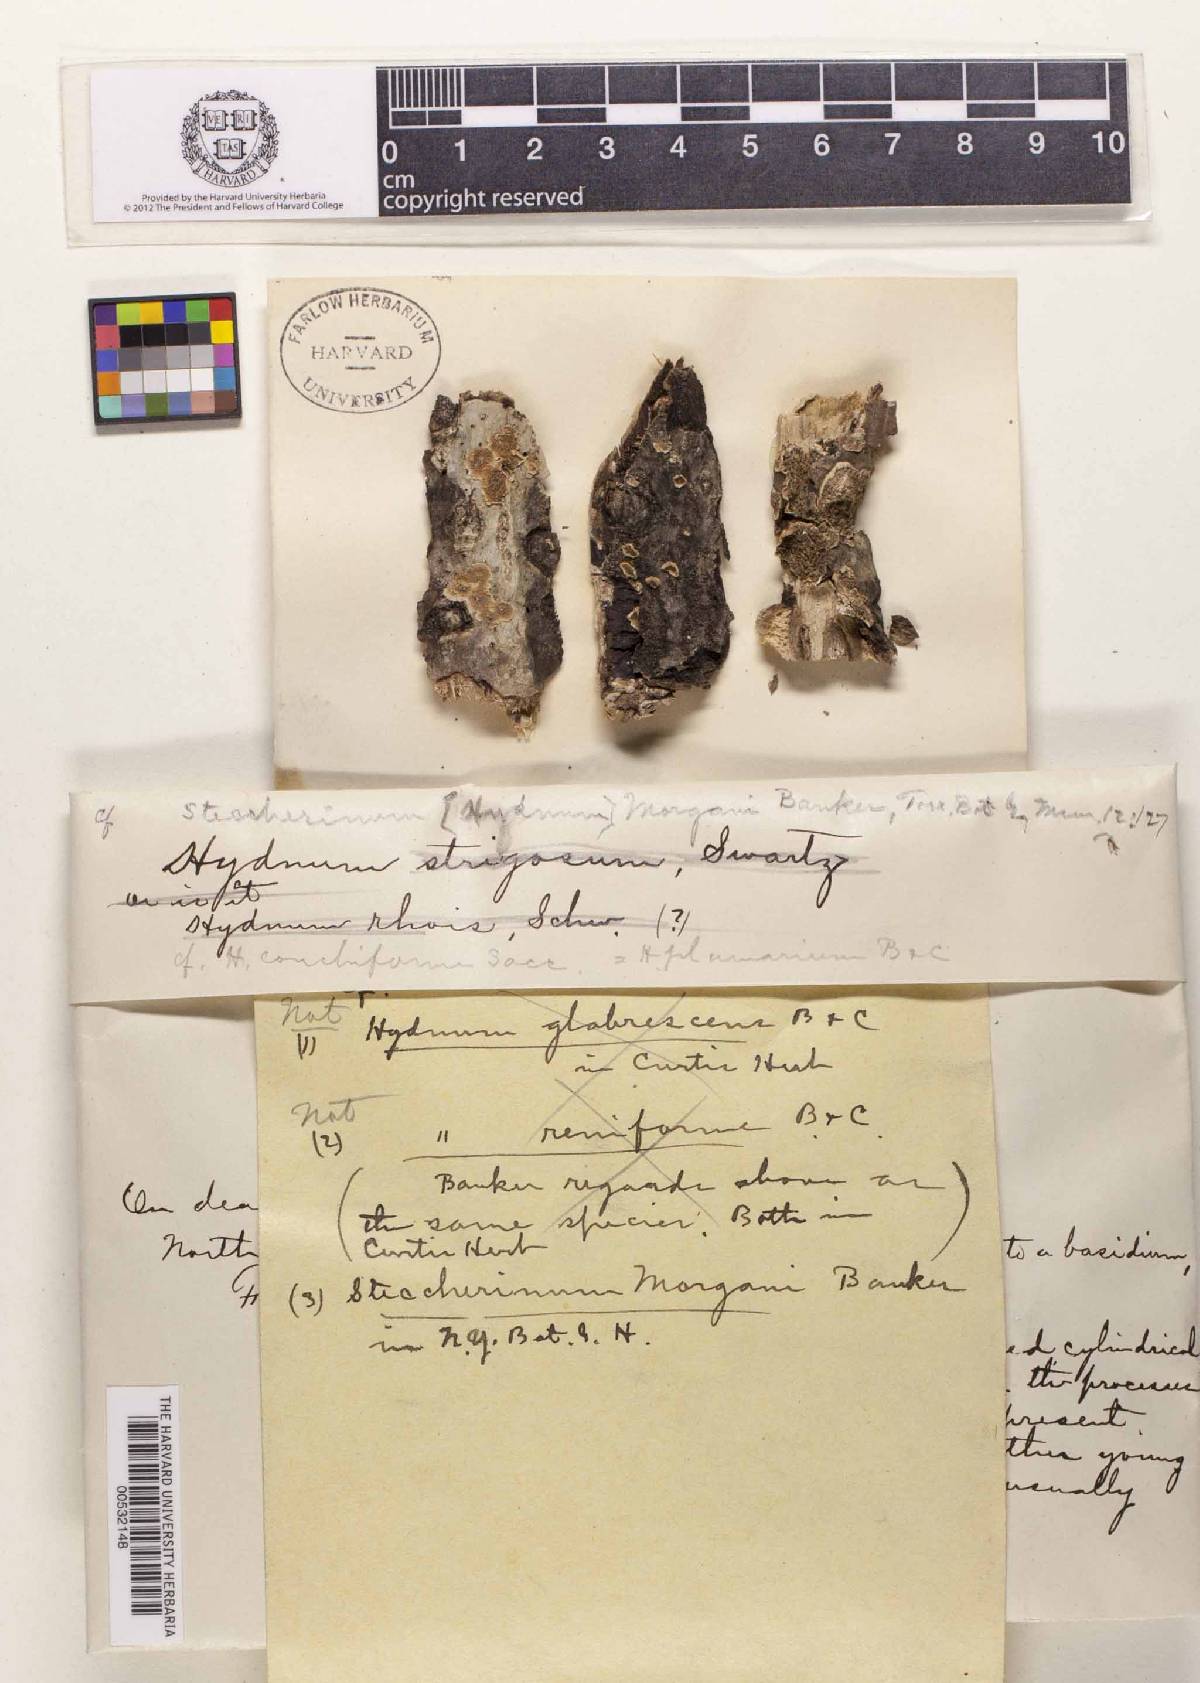 VE RI
TAS
HARVARD
Provided by the Harvard University Herbaria
© 2012 The President and Fellows of Harvard College
0 1 2 3 4 5 6 7 8 9 10
cm
copyright reserved
FARLOW HERBARIUM
HARVARD
UNIVERSITY
cf Steccherinum [Hydnum] Morgani Banker, Torr. Bot Mem. 12:127
Hydnum strigosum, Swartz
or is it
Hydnum rhois, Schw. (?)
cf. H. conchiforme Sacc. = H plumarium B & C
Not
(1) Hydnum glabrescens B & C
in Curtis Herb
Not
(2) " reniforme B & C.
(Banker regards above as
the same species. Both in
Curtis Herb)
(3) Steccherinum Morgani Banker
in N.Y. Bot. G. H.
On dea
North
to a basidium,
ed cylindrical
. the processes
present.
ther young
usually
THE HARVARD UNIVERSITY HERBARIA
00532148